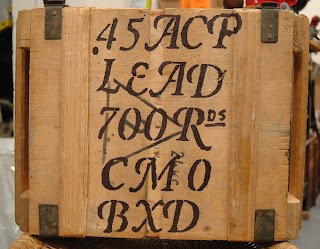 .45 ACP
LEAD
700 RDS
CMO
BXD